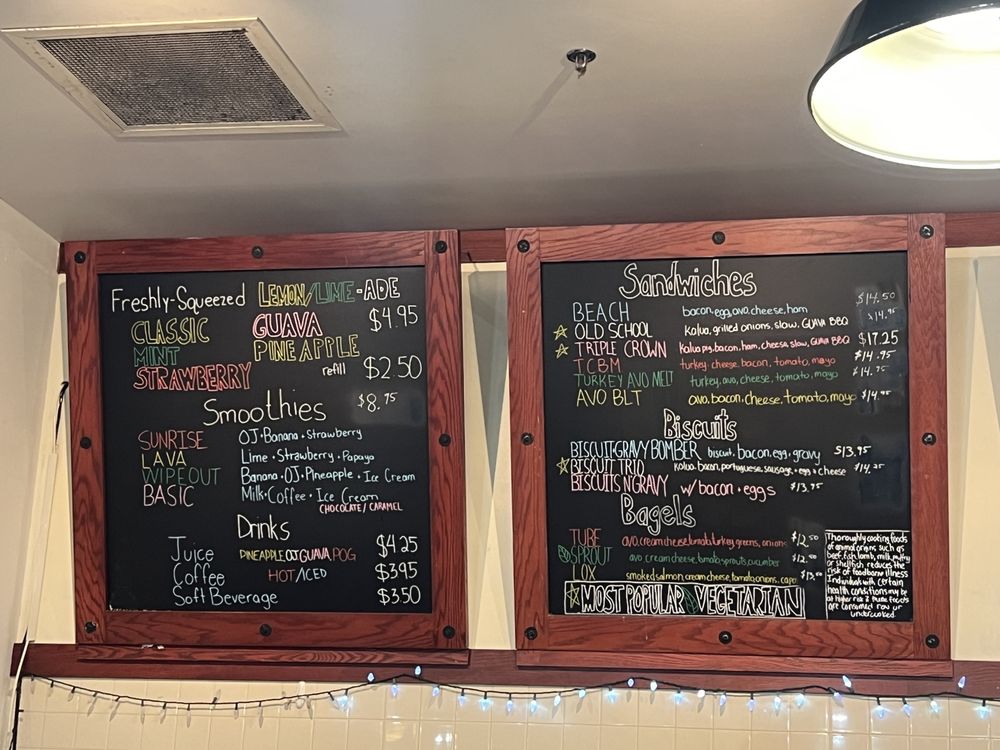 Freshly-Squeezed LEMON/LIME-ADE
CLASSIC GUAVA $4.95
MINT PINEAPPLE
STRAWBERRY refill $2.50
Smoothies $8.95
SUNRISE OJ·Banana·Strawberry
LAVA Lime·Strawberry·Papaya
WIPEOUT Banana·OJ·Pineapple·Ice Cream
BASIC Milk·Coffee·Ice Cream
CHOCOLATE/CARAMEL
Drinks
Juice PINEAPPLE,OJ,GUAVA,POG $4.25
Coffee HOT/ICED $3.95
Soft Beverage $3.50
Sandwiches
BEACH bacon,egg,avo,cheese,ham $14.50
OLD SCHOOL kalua, grilled onions, slaw, GUAVA BBQ $14.95
TRIPLE CROWN kalua pig,bacon,ham,cheese,slaw,GUAVA BBQ $17.25
TCBM turkey,cheese,bacon,tomato,mayo $14.95
TURKEY AVO MELT turkey,avo,cheese,tomato,mayo
AVO BLT avo,bacon,cheese,tomato,mayo
Biscuits
BISCUIT+GRAVY BOMBER biscuit,bacon,egg,gravy $13.95
BISCUIT TRIO kalua,bacon,portuguese,sausage+egg+cheese
BISCUITS N' GRAVY w/bacon+eggs $13.95
Bagels
TUBE avo,creamcheese,tomato,turkey,greens,onions $12.50
SPROUT avo,creamcheese,tomato,sprouts,cucumber $12.50
LOX smoked salmon,cream cheese,tomato,onions,caper
MOST POPULAR VEGETARIAN
Thoroughly cooking foods
of animal origin such as
beef, fish, lamb, milk, poultry
or shellfish reduces the
risk of foodborne illness
Individuals with certain
health conditions may be
at higher risk if these foods
are consumed raw or
undercooked.